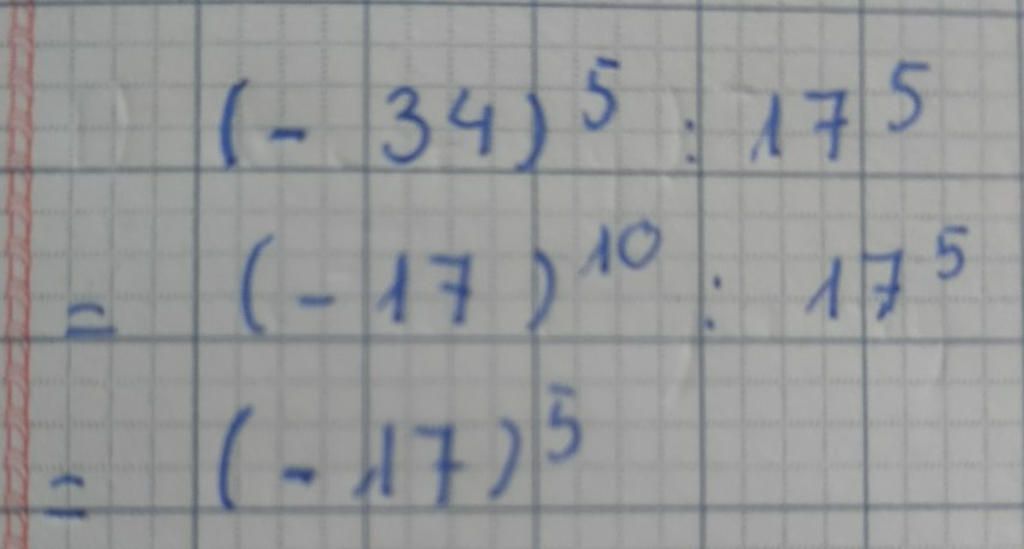 (- 34)⁵ : 17⁵
= (- 17)¹⁰ : 17⁵
= (- 17)⁵